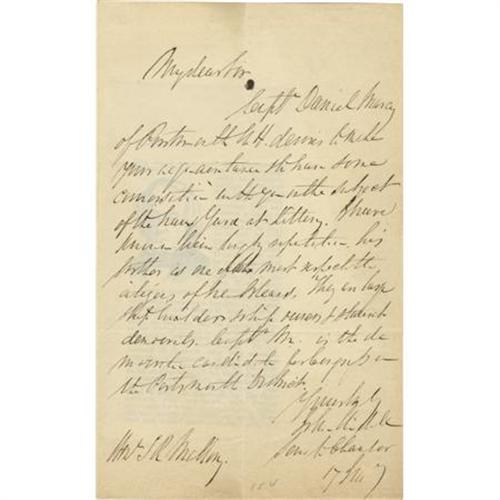 My dear Sir
Capt Daniel Marcy
of Portsmouth N.H. desires to make
your acquaintance & to have some
conversation with you on the subject
of the Navy Yard at Kittery. I have
known him by reputation his
brother as one of the most respectable
citizens of the They are large
ship builders & ship owners &
democrats. Capt M. is the de
mocratic candidate for Congress in
the Portsmouth District
Yours truly
Senate Chamber
17
Hon. S R Mallory.